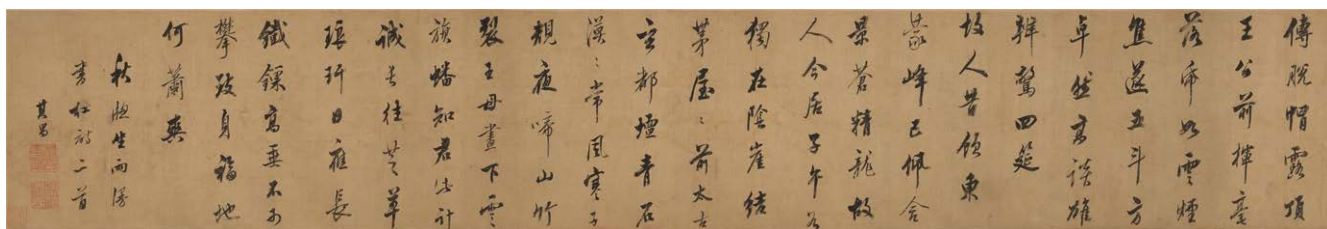 傳脫帽露頂
王公前揮毫
落帋如雲煙
焦遂五斗方
卓然高談雄
辯驚四筵
故人昔隱東
蒙峰已佩含
景蒼精龍故
人今居子午谷
獨在陰崖結
茅屋〻前太古
玄都壇青石
漠〻常風寒子
規夜啼山竹
裂王母晝下雲
旗幡知君此計
誠長往芝草
琅玕日應長
鐵鎖高垂不可
攀致身福地
何蕭爽
秋坐雨漫
書杜詩二首
其昌